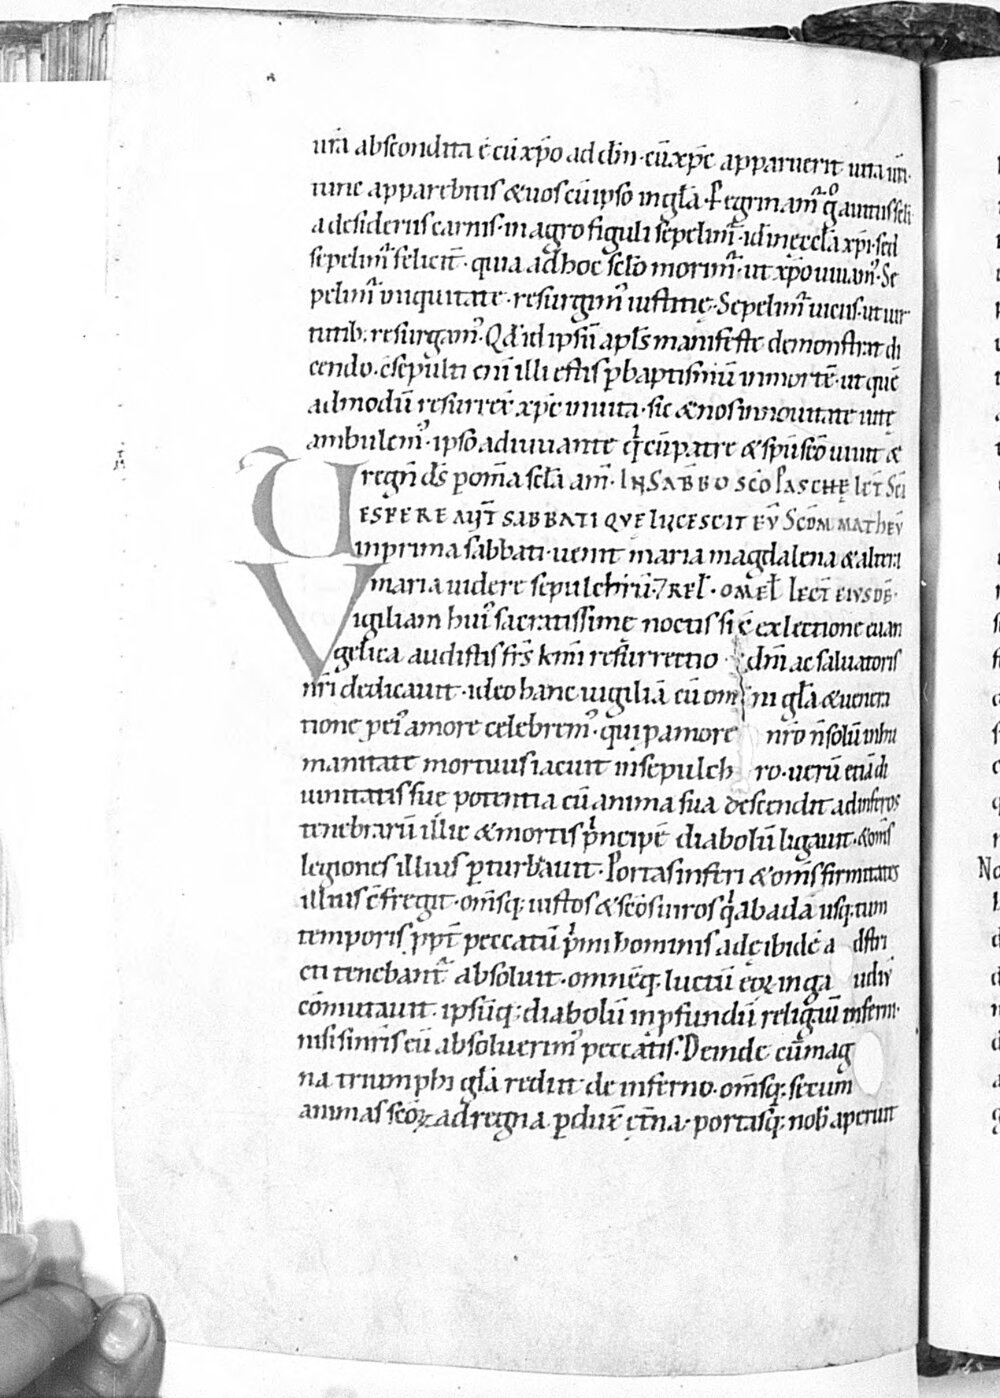 ur̄a abscondita ē cū xp̄o ad dm̄· cū xp̄c apparuerit uita ur̄a·
tunc apparebitis & uos cū ipso in gl̄a· Peregrinam᷑ gͦ antiussebi
a desideriis carnis· in agro figuli sepelim᷑· id in ęccl̄a xp̄i· sed
sepelim᷑ feliciť· quia ad hoc sclo morim᷑· ut xp̄o uiuam᷒· Se
pelim᷑ iniquitate· resurgim᷒ iustitię· Sepelim᷑ uiciis· ut uir
tutib; resurgam᷒· Qd̄ id ipsū apl̄s manifeste demonstrat di
cendo· c̄sepulti eni̅ illi estis p̱ baptismū in mortē· ut quē
admodū resurrex̄ xp̄c in uita· sic & nos in nouitate uitę
ambulem᷒· ipso adiuuante qͥ cū patre & spū scō uiuit &
regn̄ d̄s p̱ om̄a scl̄a am̄· IN SABBO SCO PASCHĘ LECT̄ SCI
VESPERE AUT̄ SABBATI QVE LUCESCIT EV̄ SCDM MATHEV̄
in prima sabbati· uenit maria magdalena & altera
maria uidere sepulchrū· 7 REL̄· OMEL̄ LECT̄ EIVSDĒ·
Vigiliam hui᷒ sacratissime noctis si c̄ ex lectione euan
gelica audistis frs̄ kmī resurrectio dm̄i ac saluatoris
nr̄i dedicauit· ideo hanc uigiliā cū omni gl̄a & uenera
tione p̱ ei᷒ amore celebrem᷒· qui p̱ amore nr̄o n̄ solū in hu
manitate mortuus iacuit in sepulchro· uerū etiā di
uinitatis suę potentia cū anima sua descendit ad inferos
tenebrarū illic & mortis pͥncipē diabolū ligauit· & om̄s
legiones illius p̱turbauit· Portas inferi & om̄s firmitates
illius c̄fregit· om̄sq; iustos & scōs uiros qͥ ab adā usq; tum
temporis ꝓpt̄ peccatū pͥmi hominis adę ibidē a dstri
cti tenebant᷑ absoluit· omnēq; luctū eoꝝ in gaudiū
cōmutauit· ipsūq; diabolū in ꝓfundū religauit inferni·
nisi sinris cū absoluerim᷒ peccatis· Deinde cū mag
na triumphi gl̄a rediit de inferno· om̄sq; secum
animas scōꝝ ad regna p̱duxē ęt̄na· portasq; nob̄ aperuit